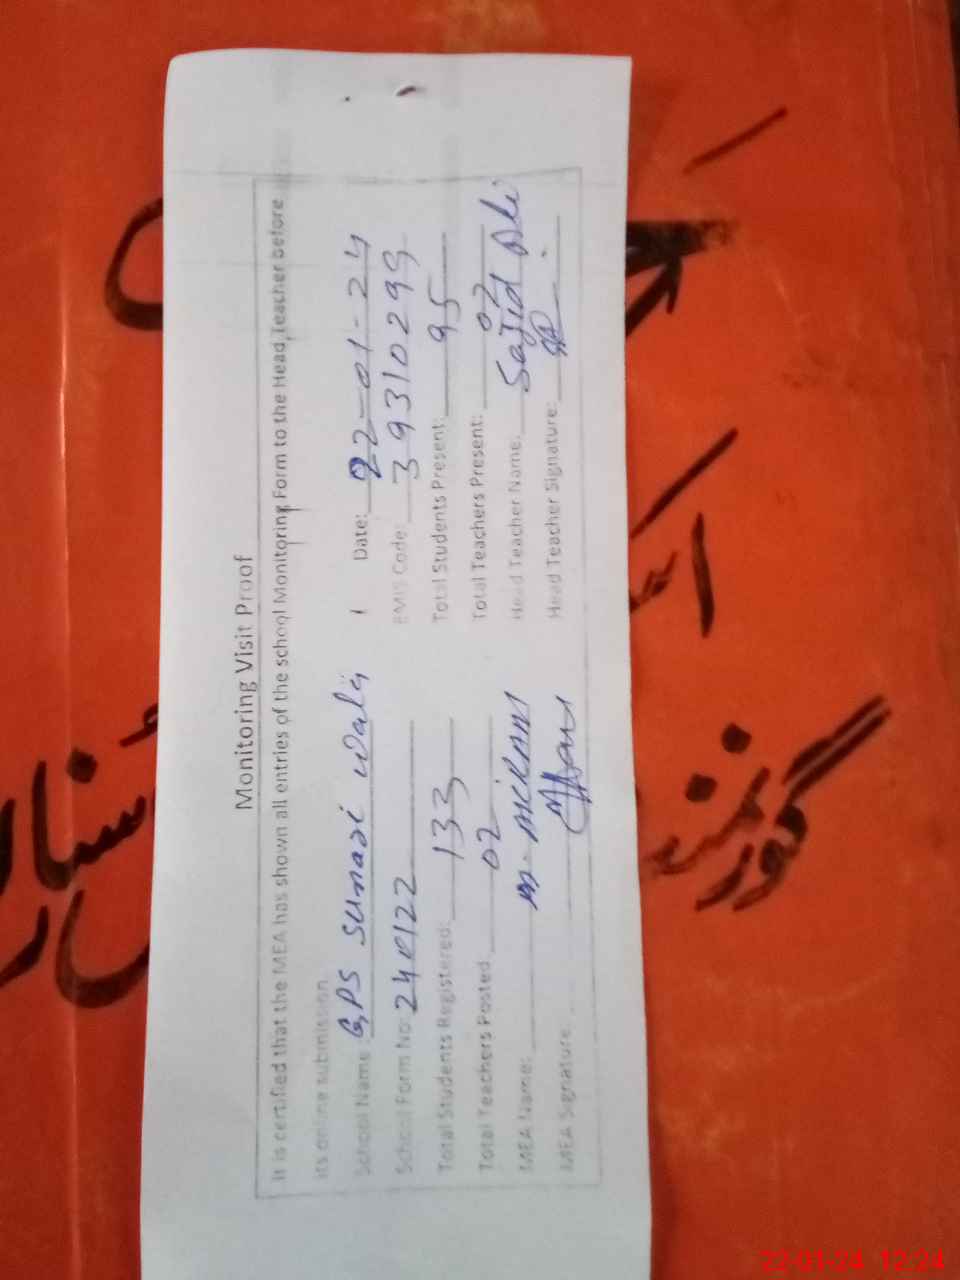 Monitoring Visit Proof
It is certified that the MEA has shown all entries of the school Monitoring Form to the Head Teacher before
its online submission
School Name: GPS sunari wala Date: 22-01-24
School Form No: 240122 EMIS Code: 39310299
Total Students Registered: 133 Total Students Present: 95
Total Teachers Posted 02 Total Teachers Present: 02
MEA Name: M. Head Teacher Name: Sajid Ali
MEA Signature Head Teacher Signature:
گورنمنٹ
22-01-24 12:24